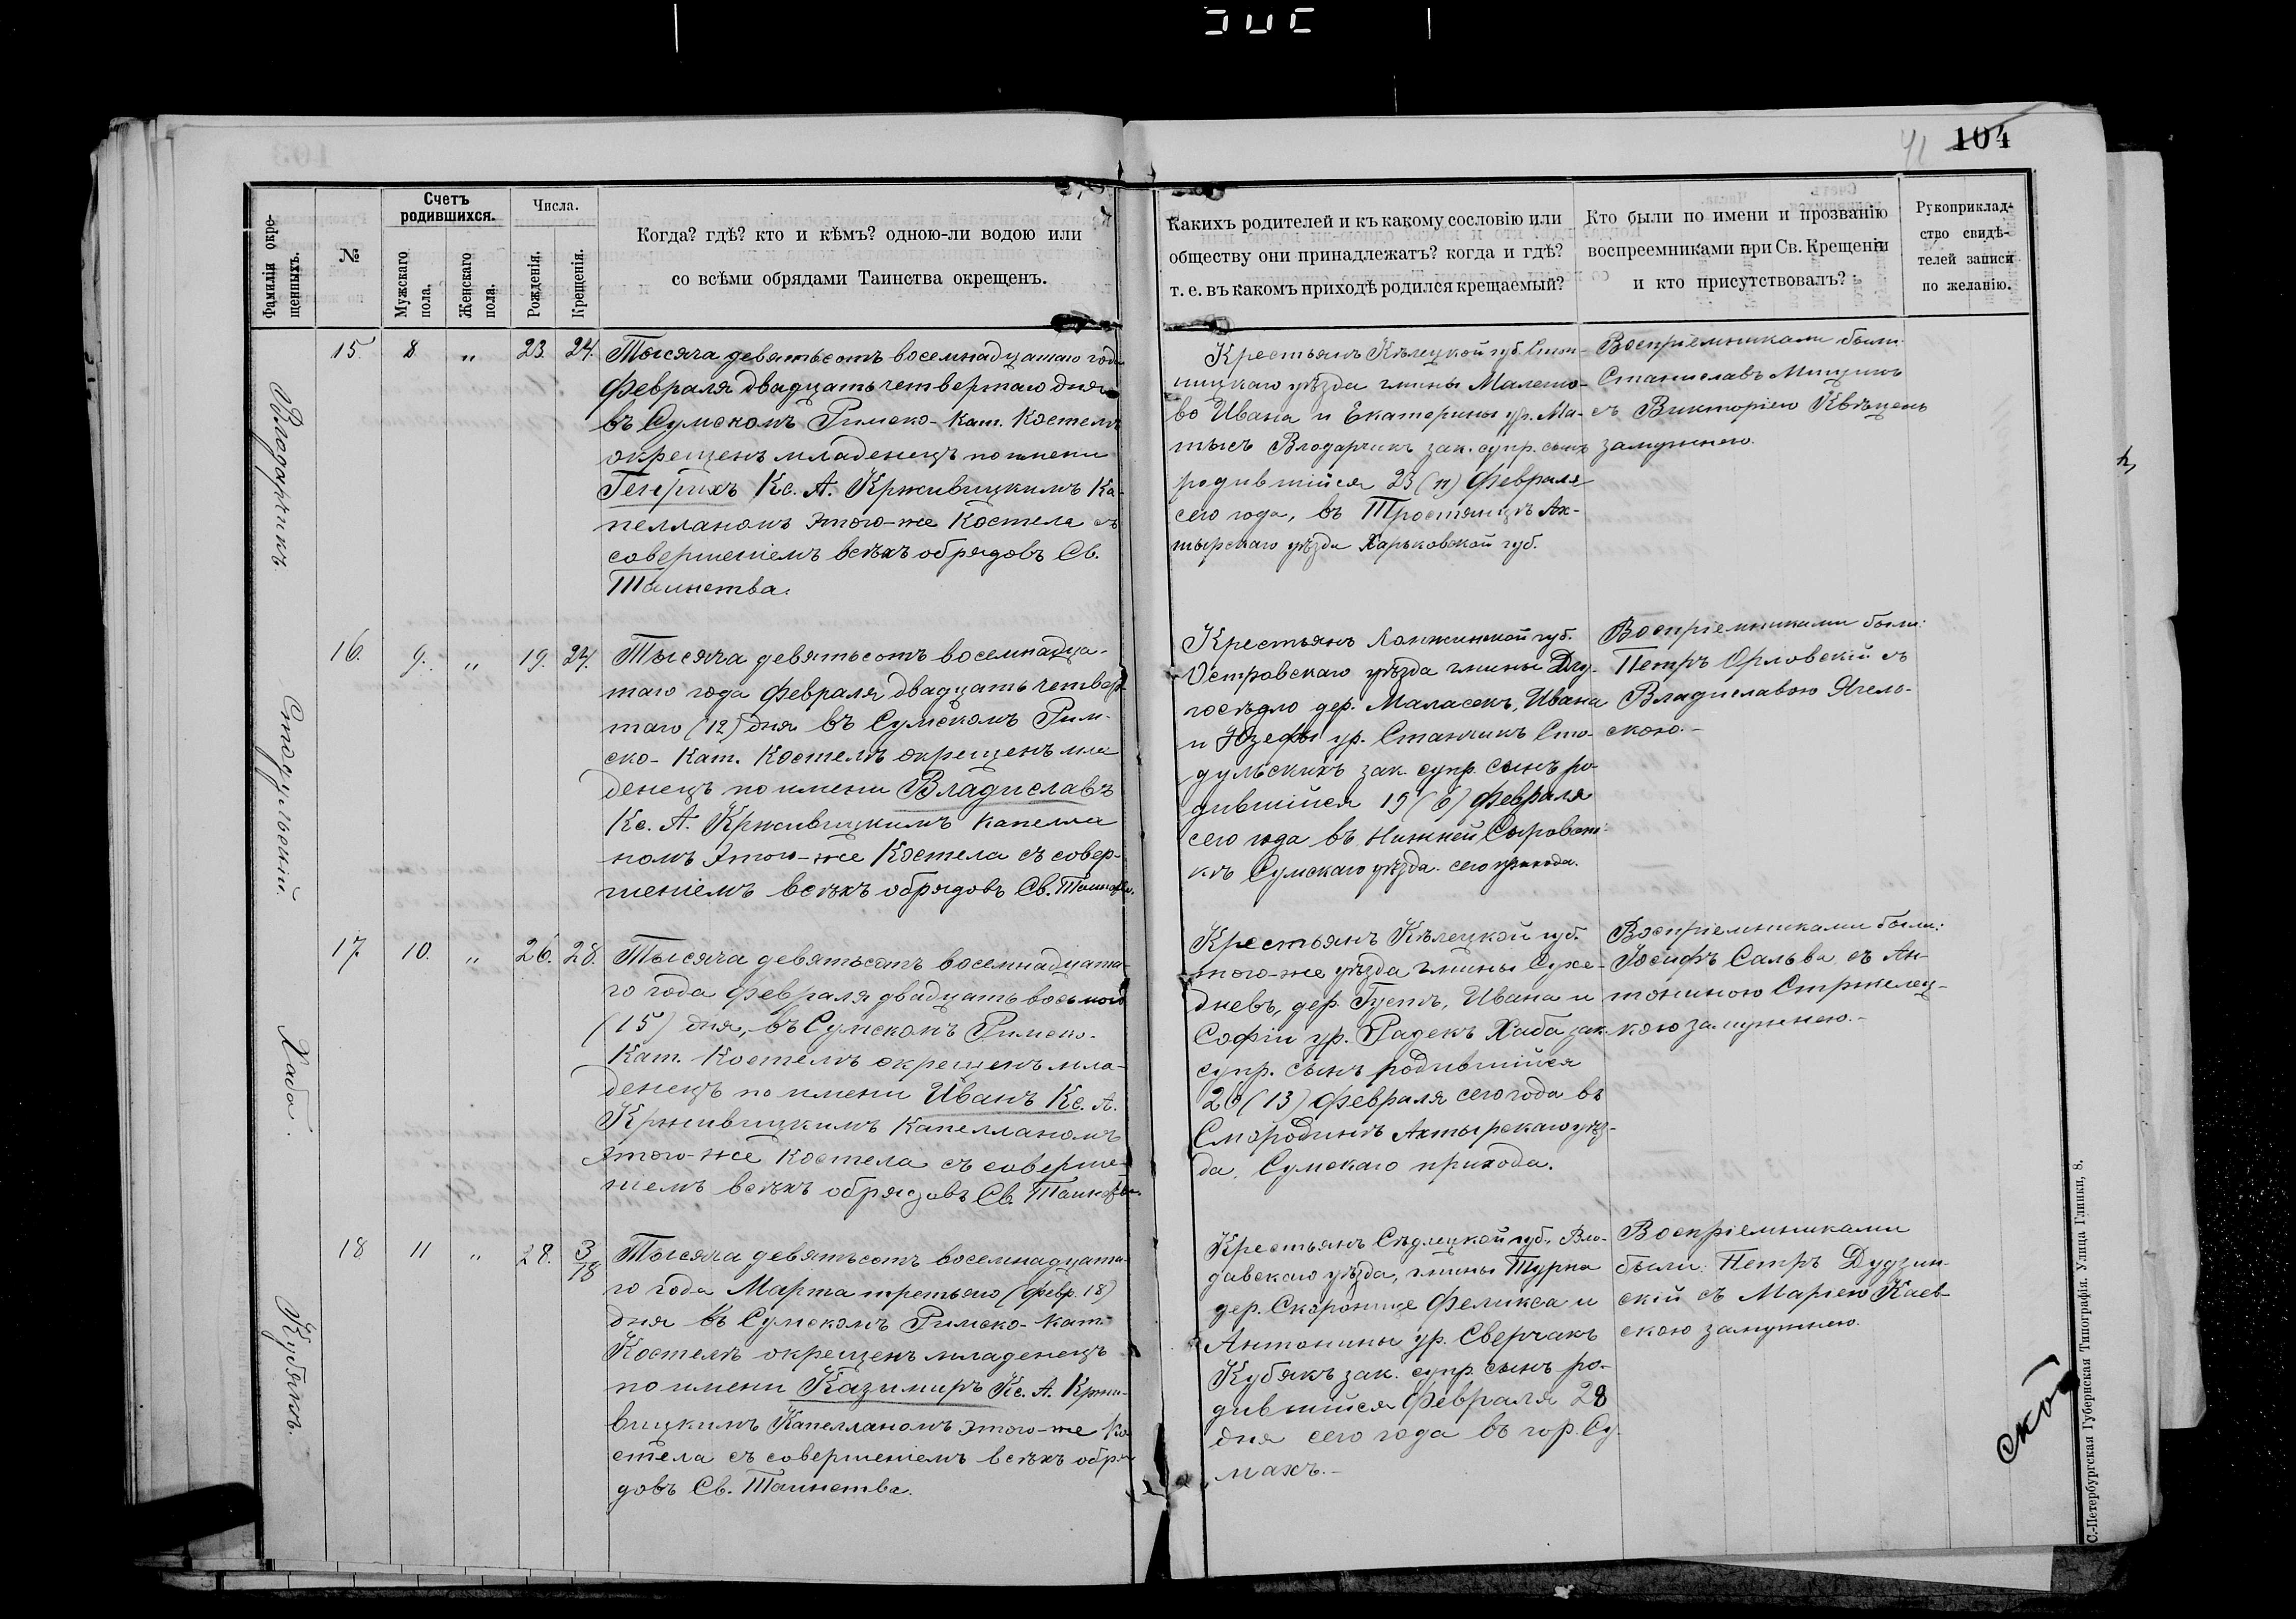 41 104
Фамиліи окре-
щенныхъ.
№
Счетъ
родившихся.
Мужскаго
пола.
Женскаго
пола.
Числа.
Рожденія.
Крещенія.
Когда? гдѣ? кто и кѣмъ? одною-ли водою или
со всѣми обрядами Таинства окрещенъ.
Какихъ родителей и къ какому сословію или
обществу они принадлежатъ? когда и гдѣ?
т. е. въ какомъ приходѣ родился крещаемый?
Кто были по имени и прозванію
воспреемниками при Св. Крещеніи
и кто присутствовалъ?
Рукоприклад-
ство свидѣ-
телей записи
по желанію.
Влодарчикъ.
15. 8 „ 23. 24.
Тысяча девятьсотъ восемнадцатаго года
Февраля двадцать четвертаго дня
въ Сумскомъ Римско-Кат. Костелѣ
окрещенъ младенецъ по имени
Генрихъ Кс. А. Крживицкимъ Ка-
пелланомъ этого-же Костела съ
совершеніемъ всѣхъ обрядовъ Св.
Таинства.
Крестьянъ Кѣлецкой губ. Стоп-
ницкаго уѣзда гмины Малешо-
во Ивана и Екатерины ур. Ма-
тысъ Влодарчикъ зак. супр. сынъ
родившійся 23 (11) Февраля
сего года, въ Тростянцѣ Ах-
тырскаго уѣзда Харьковской губ.
Воспріемниками были:
Станиславъ
съ Викторіею Квѣцень
замужнею.
Стодульскій.
16. 9. „ 19. 24.
Тысяча девятьсотъ восемнадца-
таго года Февраля двадцать четвер-
таго (12) дня въ Сумскомъ Рим-
ско-Кат. Костелѣ окрещенъ мла
денецъ по имени Владиславъ
Кс. А. Крживицкимъ Капелла
номъ этого-же Костела съ совер-
шеніемъ всѣхъ обрядовъ Св. Таинства.
Крестьянъ Ломжинской губ.
Островскаго уѣзда гмины Длу-
госѣдло дер. Маласекъ, Ивана
и Юзефы ур. Станчикъ Сто-
дульскихъ зак. супр. сынъ ро-
дившійся 19 (6) Февраля
сего года въ Нижней Сыроват-
кѣ Сумскаго уѣзда сего прихода.
Воспріемниками были:
Петръ Орловскій съ
Владиславою Ягель-
скою.-
Хаба.
17. 10. „ 26. 28.
Тысяча девятьсотъ восемнадцата-
го года Февраля двадцать восьмого
(15) дня, въ Сумскомъ Римско-
Кат. Костелѣ окрещенъ мла-
денецъ по имени Иванъ Кс. А.
Крживицкимъ Капелланомъ
этого-же Костела съ соверше-
ніемъ всѣхъ обрядовъ Св. Таинства.
Крестьянъ Кѣлецкой губ.
того-же уѣзда гмины Суке-
дневъ, дер. Ивана и
Софіи ур. Радекъ Хаба зак.
супр. сынъ родившійся
26 (13) Февраля сего года въ
Смородинѣ Ахтырскаго уѣз-
да, Сумскаго прихода.
Воспріемниками были:
Іосифъ Сальва съ Ан-
тониною Стржелец-
кою замужнею.-
Кубякъ.
18 11 „ 28. 3/18
Тысяча девятьсотъ восемнадцата-
го года Марта третьяго (Февр. 18)
дня въ Сумскомъ Римско-Кат-
Костелѣ окрещенъ младенецъ
по имени Казимиръ Кс. А. Кржи-
вицкимъ Капелланомъ этого-же Ко
стела съ совершеніемъ всѣхъ обря
довъ Св. Таинства.
Крестьянъ Сѣдлецкой губ. Вло-
давскаго уѣзда, гмины Турна
дер. Феликса и
Антонины ур. Сверчакъ
Кубякъ зак. супр. сынъ ро-
дившійся Февраля 28
дня сего года въ гор. Су-
махъ.-
Воспріемниками
были: Петръ Дудзин-
скій съ Маріею Каев-
скою замужнею.
ской
С.-Петербургская Губернская Типографія. Улица Глинки, 8.